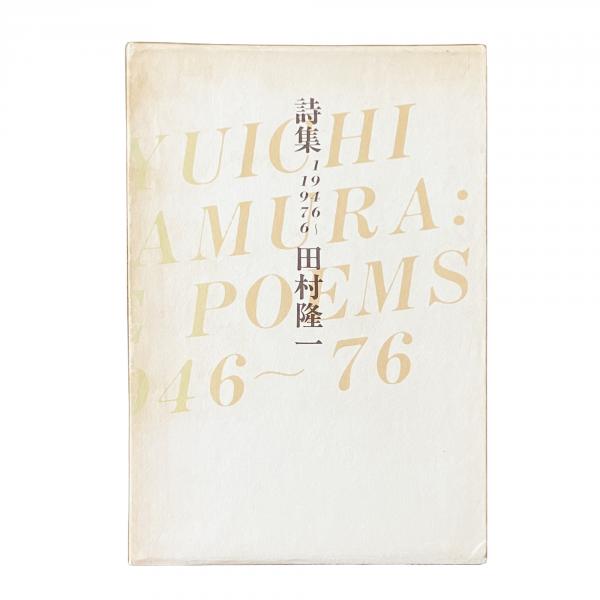 詩集 1946~1976 田村隆一
YUICHI
AMURA:
E POEMS
946~76